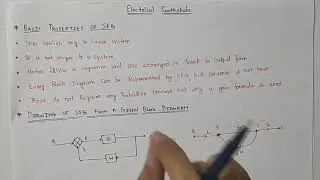 Electrical Paathshala
* BASIC PROPERTIES OF SFG
• SFG applies only to linear system
• It is not unique to a system
• Nodes follow a sequence and are arranged in Input to Output form
• Every Block Diagram Can be Represented by SFG, but converse is not true
• These do not Require any Reduction Process but only a gain formula is used
* DRAWING OF SFG FROM A GIVEN BLOCK DIAGRAM
R E G C
H
R 1 E C 1